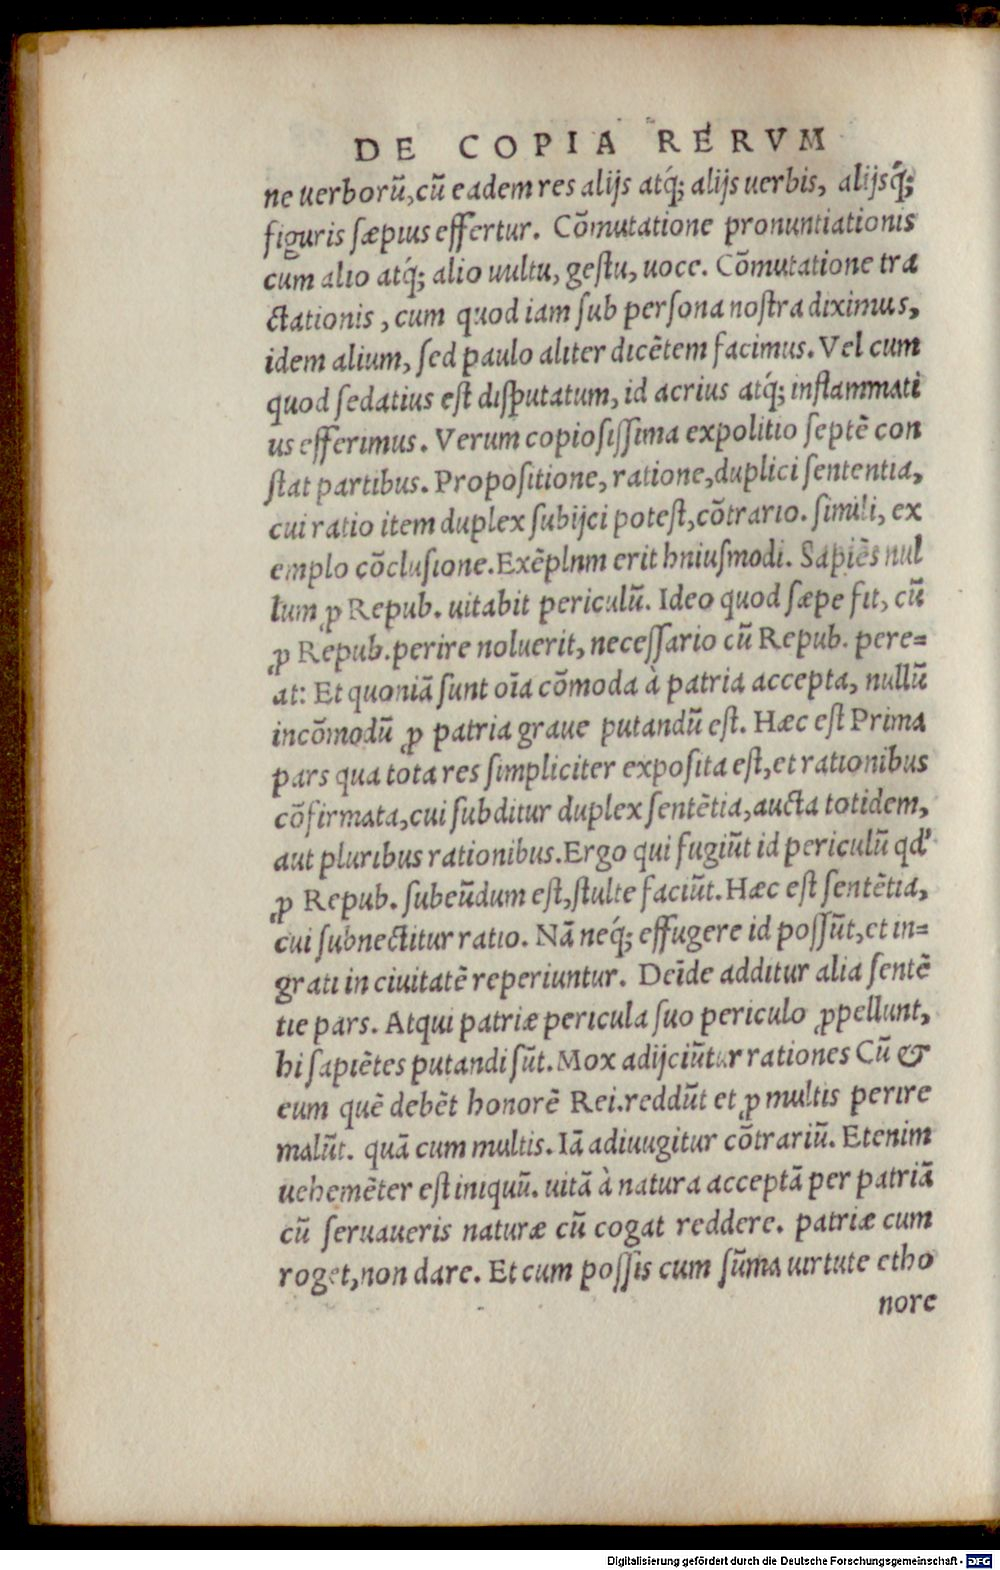 DE COPIA RERVM
ne uerborũ, cũ eadem res alijs atq́; alijs uerbis, alijsq́;
figuris sæpius effertur. Cõmutatione pronuntiationis
cum alio atq́; alio uultu, gestu, uoce. Cõmutatione tra
ctationis, cum quod iam sub persona nostra diximus,
idem alium, sed paulo aliter dicẽtem facimus. Vel cum
quod sedatius est disputatum, id acrius atq́; inflammati
us efferimus. Verum copiosissima expolitio septẽ con
stat partibus. Propositione, ratione, duplici sententia,
cui ratio item duplex subijci potest, cõtrario. simili, ex
emplo cõclusione. Exẽplnm erit hniusmodi. Sapiẽs nul
lum ꝓ Repub. uitabit periculũ. Ideo quod sæpe fit, cũ
ꝓ Repub. perire noluerit, necessario cũ Repub. pere=
at: Et quoniã sunt oĩa cõmoda à patria accepta, nullũ
incõmodũ ꝓ patria graue putandũ est. Hæc est Prima
pars qua tota res simpliciter exposita est, et rationibus
cõfirmata, cui subditur duplex sentẽtia, aucta totidem,
aut pluribus rationibus. Ergo qui fugiũt id periculũ qd'
ꝓ Repub. subeũdum est, stulte faciũt. Hæc est sentẽtia,
cui subnectitur ratio. Nã neq́; effugere id possũt, et in=
grati in ciuitatẽ reperiuntur. Deĩde additur alia sentẽ
tie pars. Atqui patriæ pericula suo periculo ꝓpellunt,
hi sapiẽtes putandi sũt. Mox adijciũtur rationes Cũ &
eum quẽ debẽt honorẽ Rei. reddũt et ꝓ multis perire
malũt. quã cum multis. Iã adiuugitur cõtrariũ. Etenim
uehemẽter est iniquũ. uitã à natura acceptã per patriã
cũ seruaueris naturæ cũ cogat reddere. patriæ cum
roget, non dare. Et cum possis cum sũma uirtute et ho
nore
Digitalisierung gefördert durch die Deutsche Forschungsgemeinschaft - DFG